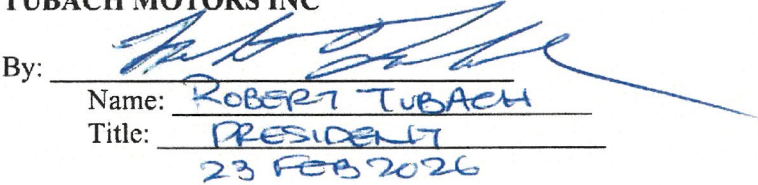 TUBACH MOTORS INC
By:
Name: ROBERT TUBACH
Title: PRESIDENT
23 FEB 2026